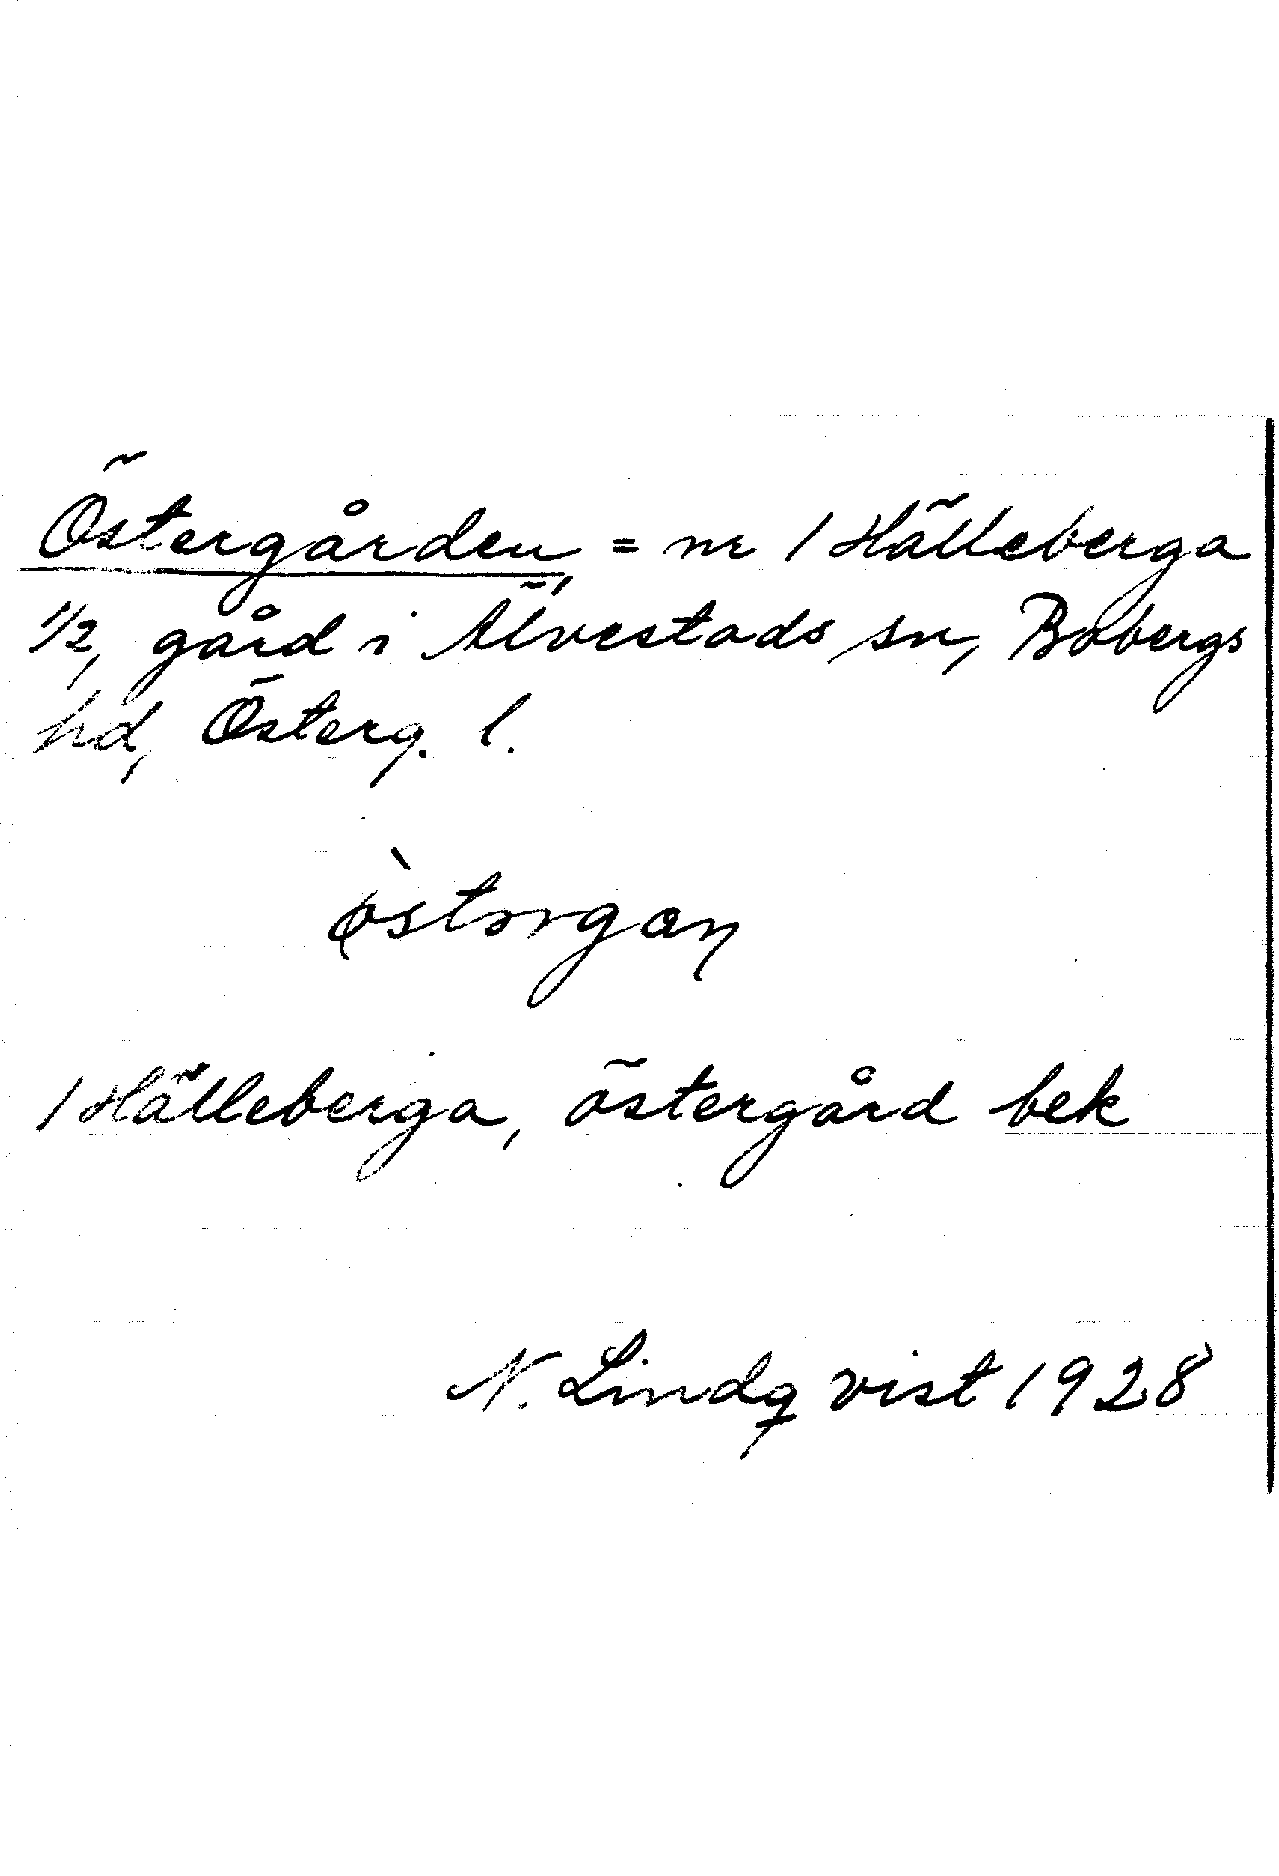 Östergården, = nr 1 Hälleberga
1/2, gård i Älvestads sn, Bobergs
hd, Österg. l.
1 Hälleberga, östergård bek
N. Lindqvist 1928